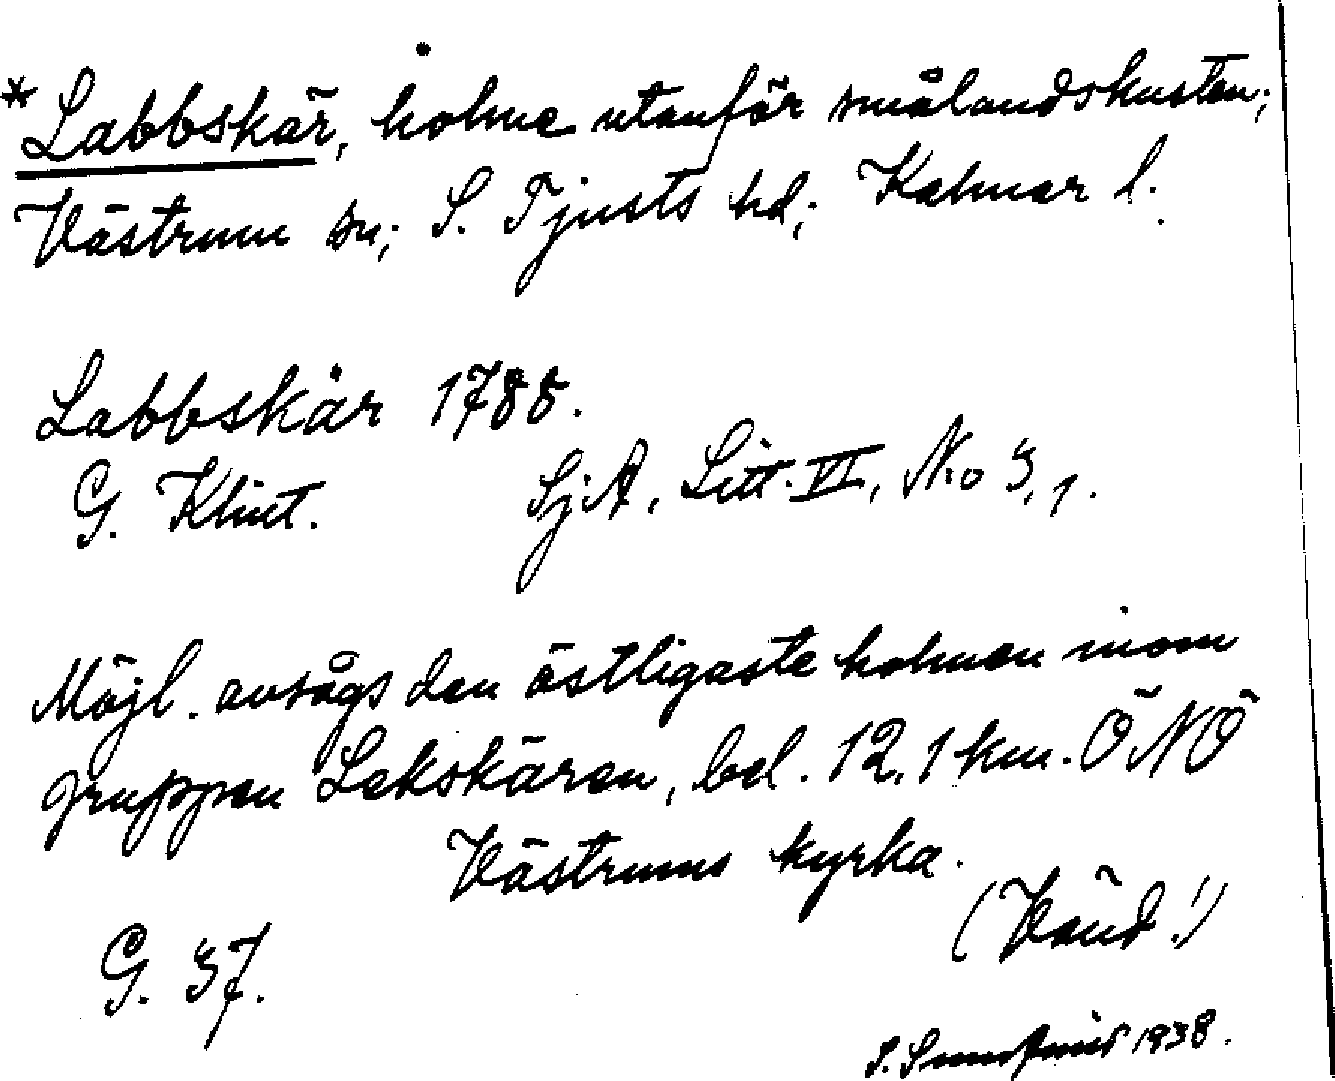 *Labbskär, holme utanför smålandskusten;
Västrum sn; S. Tjusts hd; Kalmar l.
Labbskär 1788.
G. Klint. SjA, Litt. VI, No 3, 1.
Möjl. avsågs den östligaste holmen inom
gruppen Lekskären, bel. 12,1 km. ÖNÖ
Västrums kyrka.
(Vänd!)
G. 37.
S. 1938.